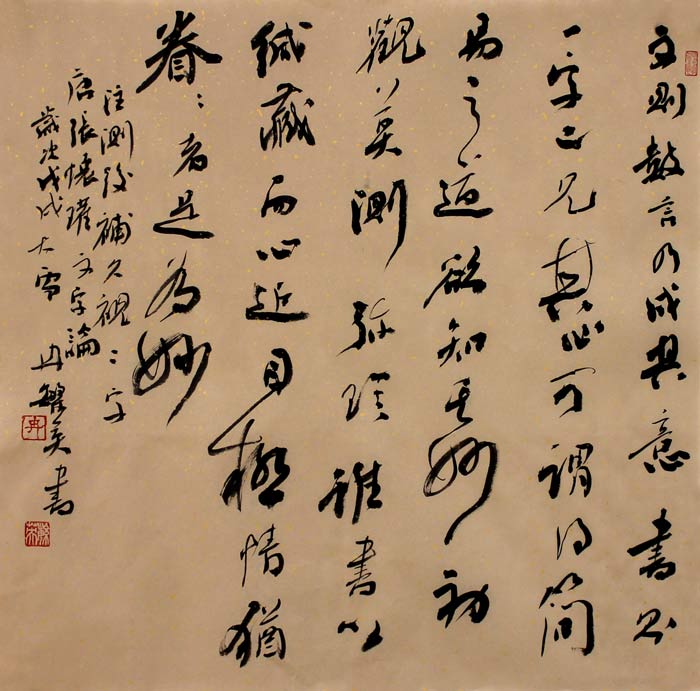 文則數言乃成其意書則
一字已見其心可謂得簡
易之道欲知其妙初
觀莫測弥珍雖書以
緘藏而心追目極情猶
眷〻者是為妙
注測後補久視二字
唐張懷瓘文字論
歲次戊戌大雪冉繁英書
冉